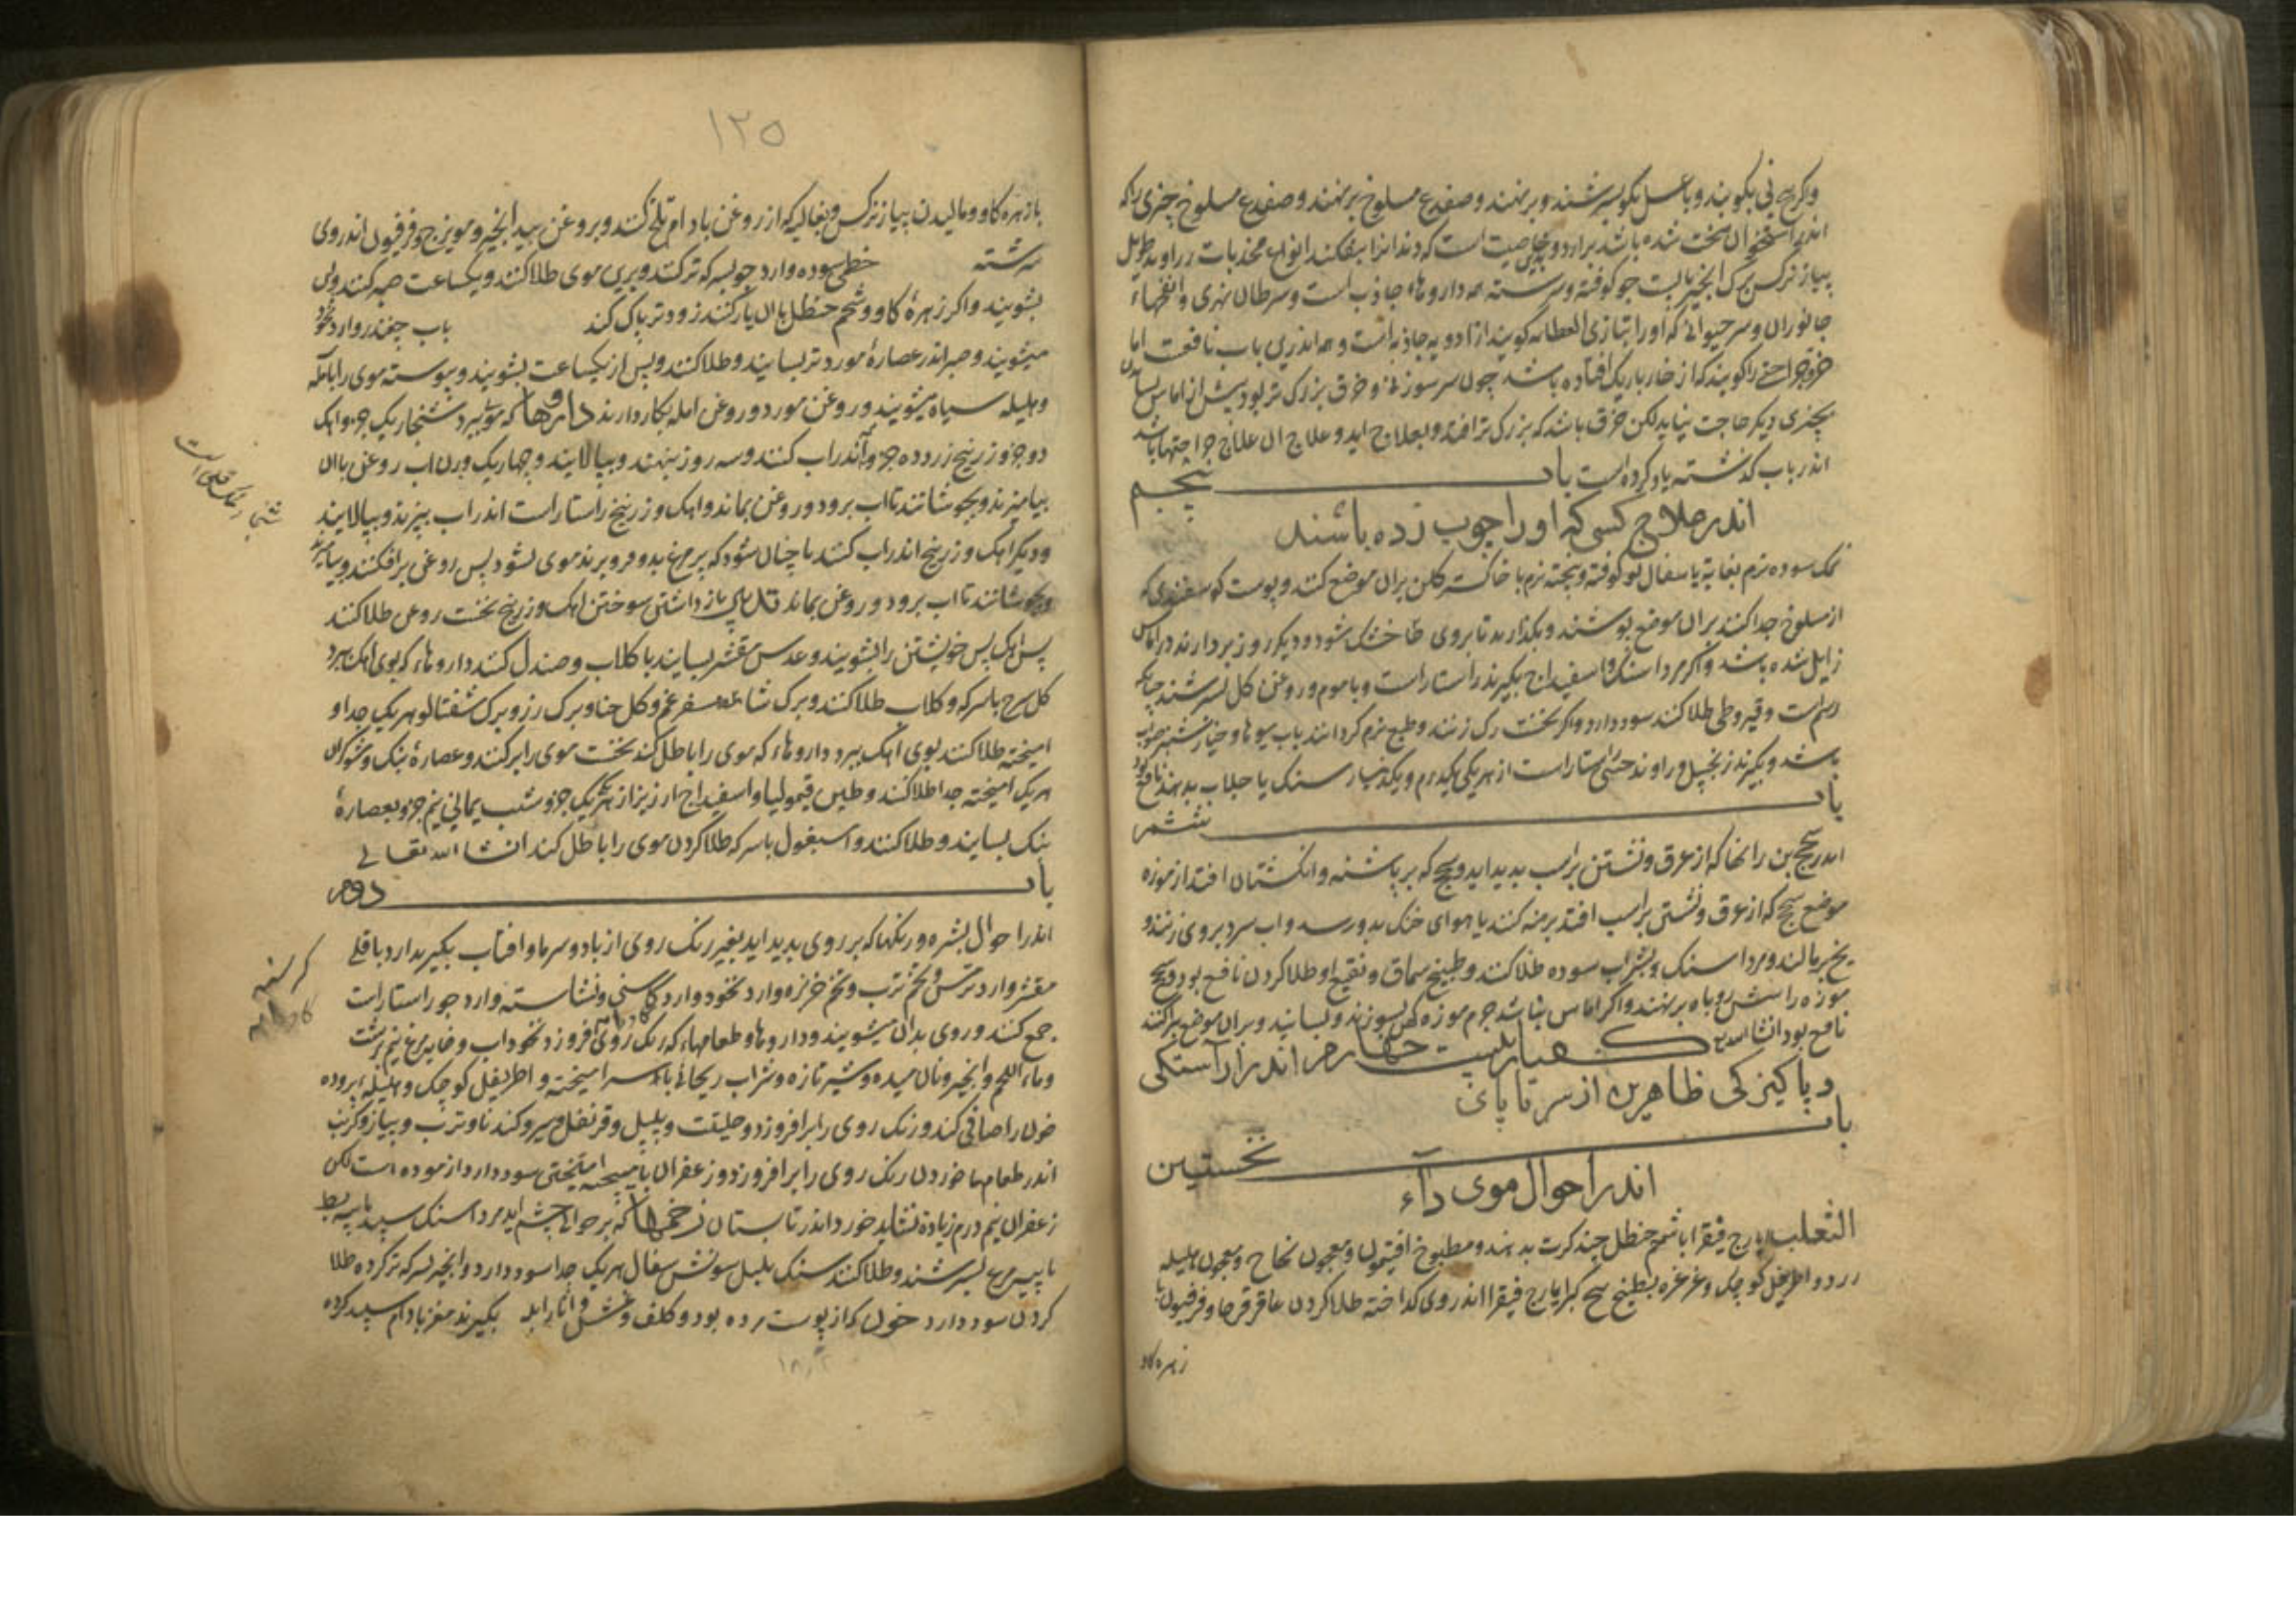 واکر بیخ نی بکوبند و با عسل بکو بسرشند و برنهند و ضفدع مسلوخ برنهند و ضفدع مسلوخ چیزی را که
اندر استخوان سخت شده باشد برارد و بخاصیت است که دندانرا بشکند انواع مجذبات زراوند طویل
پیاز نرکس برک انجیر جو کوفته و سرشته همه داروها جاذب است و سرطان نهری و انفحهاء
جانوران و سر حیوانی که او را بتازی العظایه کویند از ادویه جاذبه است و همه اندرین باب نافعست اما
خرق جراحتی را کویند که از خار باریک افتاده باشد چون سر سوزنی و خرق بزرک تر بود پیش از اماس
بچیزی دیکر حاجت نیاید لکن خرق باشد که بزرک تر افتد و بعلاج اید و علاج ان علاج جراحتها باشد
اندر باب کذشته یاد کرده است باب پنجم
اندر علاج کسی که او را چوب زده باشند
نمک سوده نرم بغایة یا سفال نو کوفته و بیخته نرم با خاکستر کلن بران موضع کنند و پوست کوسفندی که
از مسلوخ جدا کنند بران موضع پوشند و بکذارند تا بروی خشک شود و دیکر روز بردارند درد اماس
زایل شده باشد و اکر مرداسنک و اسفیداج بکیرند راستاراست و با موم و روغن کل بسرشند چنانکه
رسم است و قیروطی طلا کنند سود دارد و اکر نخست رک زنند و طبع نرم کردانند باب میوها و خیارشنبر صواب
باشد و بکیرند زنجبیل و راوند چینی راستاراست از هریکی یکدرم و یکدینار سنک با جلاب بدهند نافع بود
باب ششم
اندر سحج بن رانها که از عرق و نشستن بر اسب بدید اید و سحج که بر پاشنه و انکشتان افتد از موزه
موضع سحج که از عرق و نشستن بر اسب افتد برهنه کنند یا هوای خنک بدو رسد و اب سرد بروی زنند و
یخ برمالند و مرداسنک و بشراب سوده طلا کنند و طبیخ سماق و نقیع او طلا کردن نافع بود و سحج
موزه را شش روباه برنهند و اکر اماس نباشد جرم موزه کهن بسوزند و بسایند و بران موضع پراکنند
نافع بود انشاالله کفتار بیست چهارم اندر اراستکی
و پاکیزکی ظاهر تن از سر تا پای
باب نخستین
اندر احوال موی داء
الثعلب یارج فیقرا با شحم حنظل چند کرت بدهند و مطبوخ افتیمون و معجون نجاح و معجون هلیله
زرد و اطریفل کوچک و غرغره بطبیخ بیخ کبر ایارج فیقرا اندر وی کداخته طلا کردن عاقرقرحا و فرفیون با
زهره کاو
۱۲۵
باز زهره کاو و مالیدن پیاز نرکس و بغالیه که از روغن بادام تلخ کنند و بروغن بیدانجیر و مویزج و فرفیون اندر وی
سرشته خطمی سوده و ارد جو بسرکه تر کنند و برین موی طلا کنند و یکساعت صبر کنند و پس
بشویند و اکر زهرهٔ کاو و شحم حنظل با ان یار کنند زودتر پاک کند باب چغندر و ارد نخود
میشویند و صبر اندر عصارهٔ مورد تر بسایند و طلا کنند و پس از یکساعت بشویند و پیوسته موی را باملّه
و هلیله سیاه میشویند و روغن مورد و روغن امله بکار دارند داروها که موی ببرد شنجار یک جزو اهک
دو جزو زرنیخ زرد ده جزو اندر اب کنند و سه روز بنهند و بپالایند و چهاریک وزن اب روغن با ان
بیامیزند و بجوشانند تا اب برود و روغن بماند و اهک و زرنیخ راستاراست اندر اب بپزند و بپالایند
و دیکر اهک و زرنیخ اندر اب کنند تا چنان شود که پر مرغ بدو فرو برند موی بشود پس روغن برافکنند و بیامیزند
و بجوشانند تا اب برود و روغن بماند بازداشتن سوختن اهک و زرنیخ نخست روغن طلا کنند
پس اهک پس خویشتن را بشویند و عدس مقشر بسایند با کلاب و صندل کنند داروها که بوی اهک ببرد
کل سرخ با سرکه و کلاب طلا کنند و برک شاهسفرغم و کل حنا و برک رز و برک شفتالو هریک جدا و
امیخته طلا کنند بوی اهک ببرد داروها که موی را باطل کند نخست موی را برکنند و عصارهٔ بنک و شوکران
هریک امیخته جدا طلا کنند و طین قیمولیا و اسفیداج ارزیز از هریک یک جزو شب یمانی نیم جزو بعصارهٔ
بنک بسایند و طلا کنند و اسبغول با سرکه طلا کردن موی را باطل کند انشاالله تعالی
باب دوم
اندر احوال بشره و رنکها که بر روی بدید اید بغیر رنک روی از باد و سرما و افتاب بکیرند ارد باقلی
مقشر و ارد ترمس و تخم ترب و تخم خربزه و ارد نخود و ارد کاسنی و نشاسته و ارد جو راستاراست
جمع کنند و روی بدان میشویند و داروها و طعامها که رنک روی افروزد نخوداب و خایه مرغ نیم برشت
و ماء اللحم و انجیر و نان میده و شیر تازه و شراب ریحانی امیخته و اطریفل کوچک و هلیله پرورده
خون را صافی کند و رنک روی را برافروزد و حلیتت و پلپل و قرنفل و سیر و کندنا و ترب و پیاز و کرنب
اندر طعامها خوردن رنک روی را برافروزد و زعفران با میپخته امیختن سود دارد ازموده است لکن
زعفران نیم درم زیادة نشاید خورد اندر تابستان زخمها که بر حوالی چشم اید مرداسنک سپید با پیه بط
یا پیه مرغ بسرشند و طلا کنند سنک پلپل سونش سفال هریک جدا سود دارد و انجیر بسرکه تر کرده طلا
کردن سود دارد خون که از پوست مرده بود و کلف و نمش و اثار ابله بکیرند مغز بادام سپید کرده
شنجار نمک قلی است
کرسنه